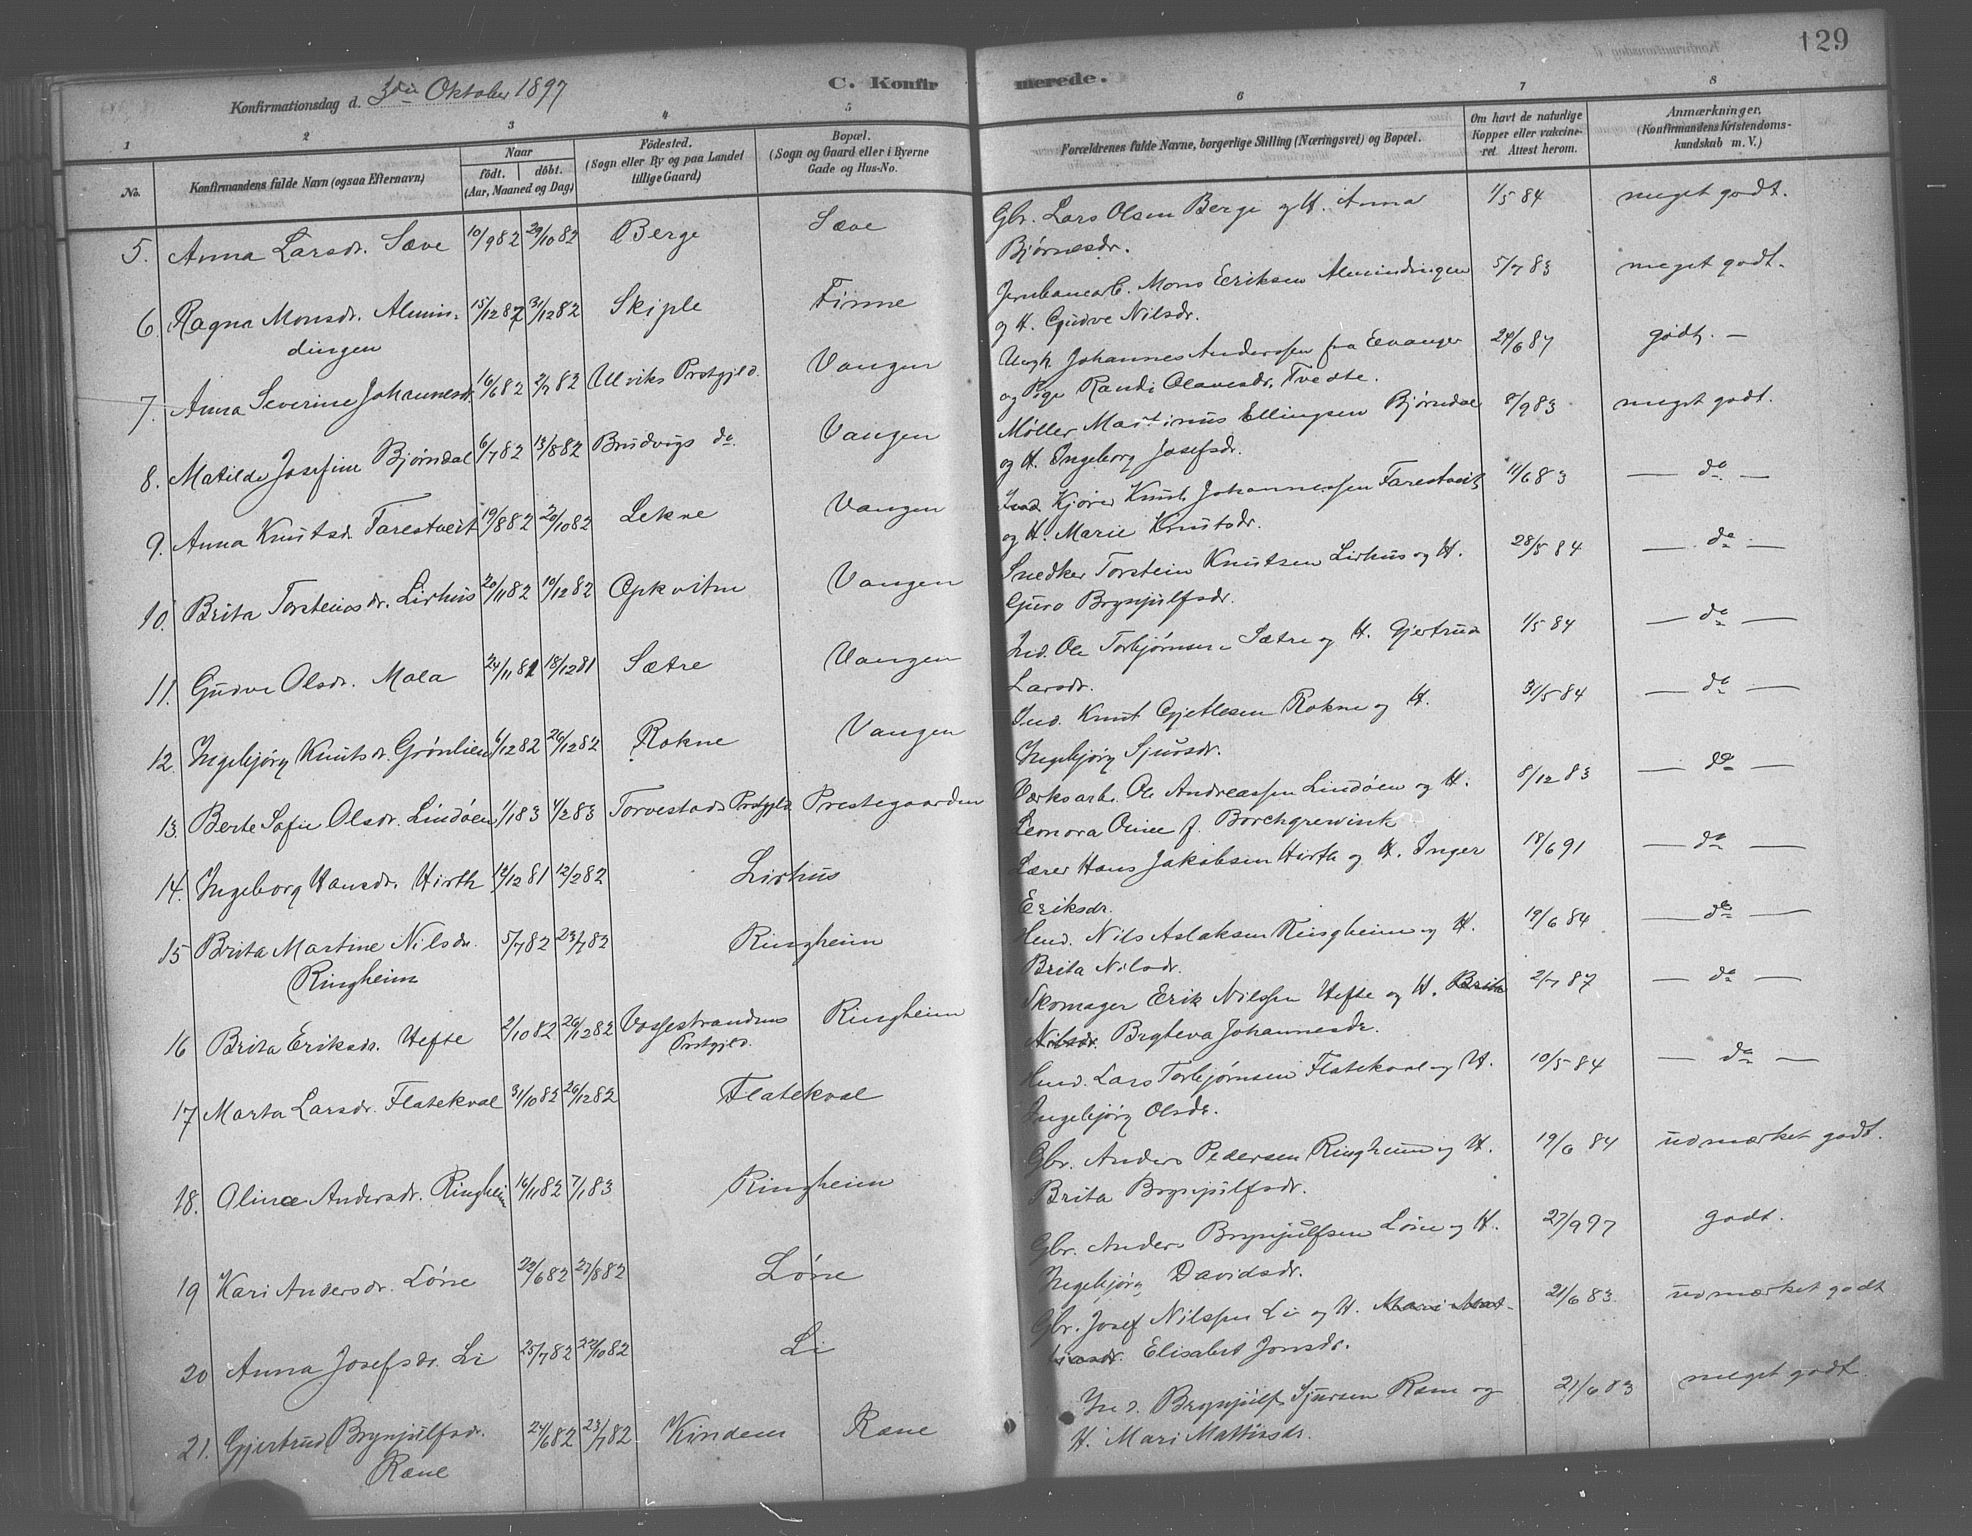 129
Konfirmationsdag d. 3die Oktober 1897
C. Konfirmerede.
1 2 3 4 5 6 7 8
No.
Konfirmandens fulde Navn (ogsaa Efternavn)
Naar
födt. döbt.
(Aar, Maaned og Dag)
Födested.
(Sogn eller By og paa Landet
tillige Gaard)
Bopæl.
(Sogn og Gaard eller i Byerne
Gade og Hus-No.
Forældrenes fulde Navne, borgerlige Stilling (Næringsvei) og Bopæl.
Om havt de naturlige
Kopper eller vakcine-
ret Attest herom.
Anmærkninger.
(Konfirmandens Kristendoms-
kundskab m. V.)
5. Anna Larsdr. Sæve 10/9 82 29/10 82 Berge Sæve Gbr. Lars Olsen Berge og H. Anna 1/5 84 meget godt.
Bjørnesdr.
6. Ragna Monsdr. Almin- 15/12 82 31/12 82 Skiple Finne Jernbanearb. Mons Eriksen Almindingen 5/7 83 meget godt.
dingen og H. Gudve Nilsdr.
7. Anna Severine Johannesdr. 16/6 82 2/7 82 Ulviks Prstgjld. Vangen Ungk. Johannes Anderssen fra Evanger 24/6 87 godt. —
og Pige Randi Olavesdr. Tvedte.
8. Matilde Josefine Bjørndal 6/7 82 13/8 82 Brudvigs do. Vangen Møller Martinus Ellingsen Bjørndal 8/9 83 meget godt.
og H. Ingeborg Josefsdr.
9. Anna Knutsd. Farestveit 19/8 82 20/10 82 Lekne Vangen Ind. Kjører Knut Johannessen Farestveit 11/6 83 — do —
og H. Marie Knutsdr.
10. Brita Torsteinsdr. Lirhus 20/11 82 10/12 82 Opkvitne Vangen Snedker Torstein Knutsen Lirhus og H. 28/5 84 — do —
Guro Brynjulfsdr.
11. Gudve Olsdr. Mala 24/11 81 18/12 81 Sætre Vangen Ind. Ole Torbjørnsen Sætre og H. Gjertrud 1/5 84 — do —
Larsdr.
12. Ingebjørg Knutsdr. Grønlien 6/12 82 26/12 82 Rokne Vangen Ind. Knut Gjetlesen Rokne og H. 31/5 84 — do —
Ingebjørg Sjursdr.
13. Berte Sofie Olsdr. Lindøen 1/1 83 4/2 83 Torvestads Prstgjld. Prestegaarden Værksarb. Ole Andreassen Lindöen og H. 8/12 83 — do —
Leonora Oline f. Borchgrewink
14. Ingeborg Hansdr. Hirth 12/12 81 12/2 82 Lirhus Lærer Hans Jakobsen Hirth og H. Inger 18/6 91 — do —
Eriksdr.
15 Brita Martine Nilsdr. 5/7 82 23/7 82 Ringheim Hmd. Nils Aslaksen Ringheim og H. 19/6 84 — do —
Ringheim Brita Nilsdr.
16 Brita Eriksdr. Hefte 2/10 82 26/12 82 Vossestrandens Ringheim Skomager Erik Nilssen Hefte og H. Brita 2/7 87 — do —
Prstgjld. Nilsdr. Brytteva Johannesdr.
17 Marta Larsdr. Flatekval 31/10 82 26/12 82 Flatekval Hmd. Lars Torbjørnsen Flatekval og H. 10/5 84 — do —
Ingebjørg Olsdr.
18. Oline Andersdr. Ringheim 16/11 82 7/1 83 Ringheim Gbr. Anders Pedersen Ringheim og H. 19/6 84 udmærket godt.
Brita Brynjulfsdr.
19 Kari Andersdr. Løne 22/6 82 27/8 82 Løne Gbr. Anders Brynjulfsen Løne og H. 27/9 97 godt.
Ingebjørg Davidsdr.
20 Anna Josefsdr. Li 25/7 82 22/10 82 Li Gbr. Josef Nilssen Li og H. Mari Mat- 21/6 83 udmærket godt
Elisabet Jonsdr.
21. Gjertrud Brynjulfsdr. 24/6 82 23/7 82 Kindem Rene Ind. Brynjulf Sjursen Rene og 21/6 83 meget godt
Rene H. Mari Mattisdr.